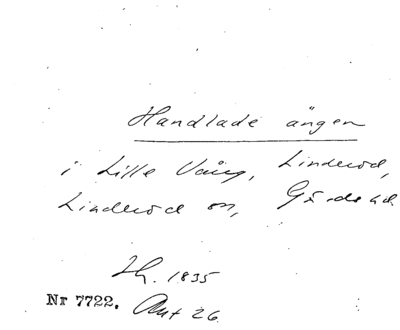 Handlade ängen
i Lille Vång, Linderöd,
Linderöd sn, Gärds hd
Nr 7722.